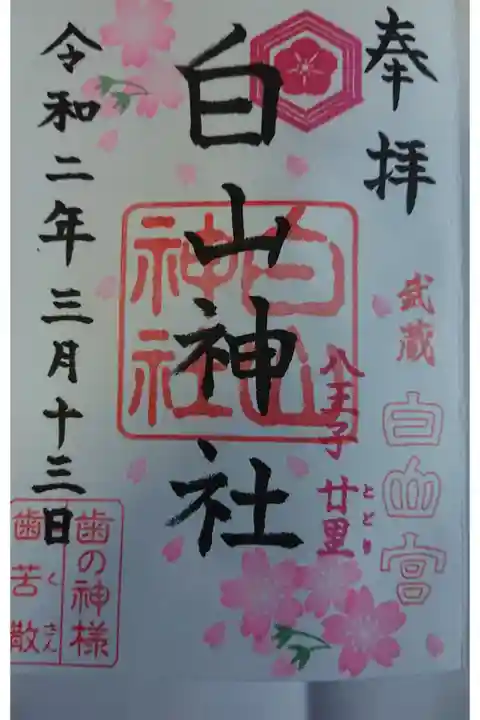 奉拝
武蔵
白山宮
白山神社
白山
神社
八王子 廿里
とどり
令和二年三月十三日
歯の神様
歯苦散
くさん